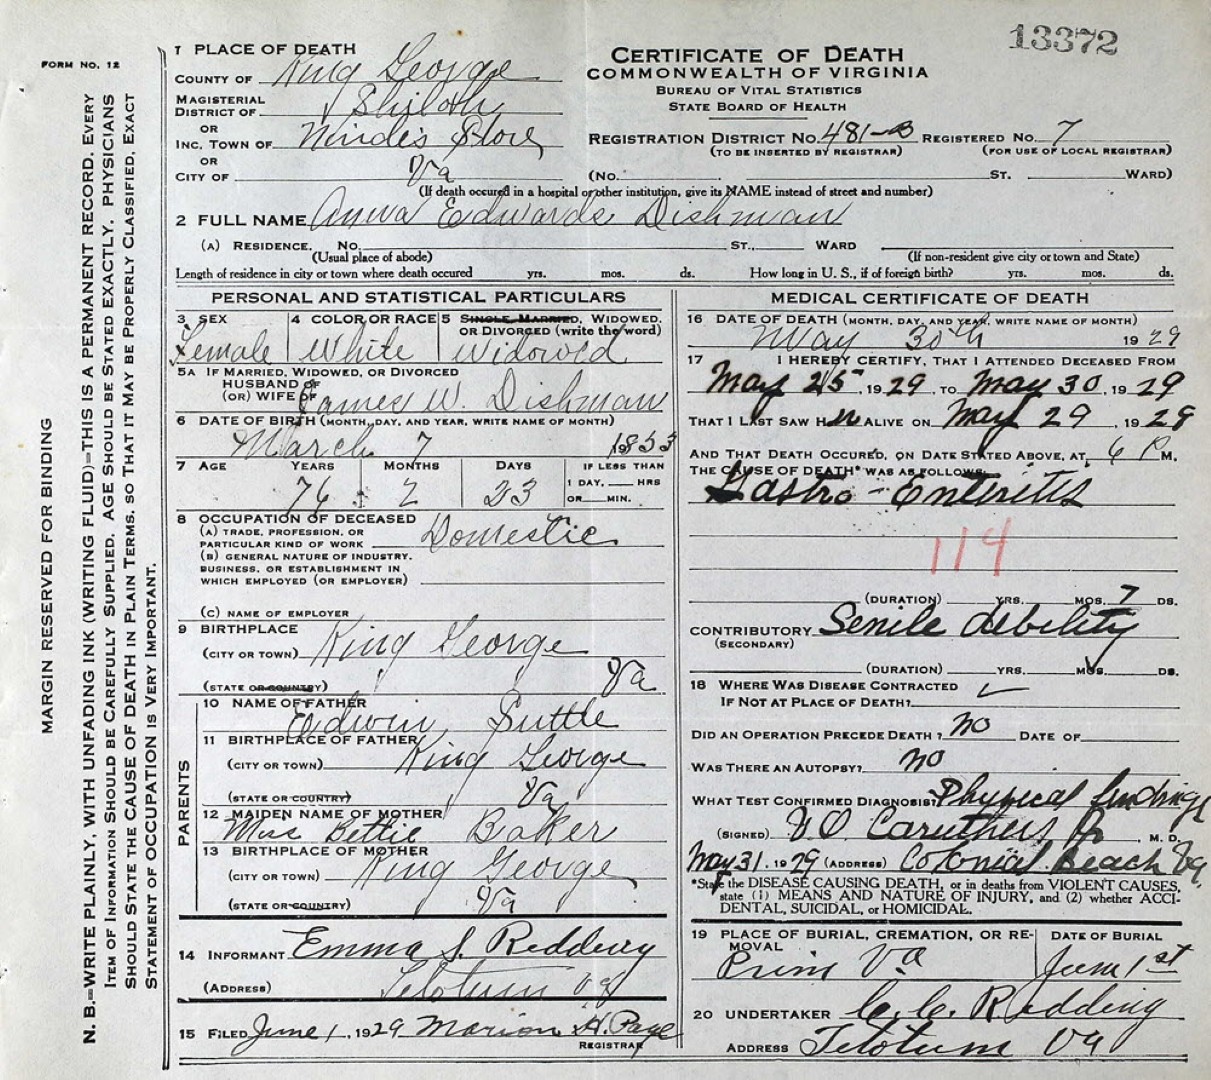 13372
FORM NO. 12
MARGIN RESERVED FOR BINDING
N. B.—WRITE PLAINLY, WITH UNFADING INK (WRITING FLUID)—THIS IS A PERMANENT RECORD. EVERY
ITEM OF INFORMATION SHOULD BE CAREFULLY SUPPLIED. AGE SHOULD BE STATED EXACTLY. PHYSICIANS
SHOULD STATE THE CAUSE OF DEATH IN PLAIN TERMS, SO THAT IT MAY BE PROPERLY CLASSIFIED. EXACT
STATEMENT OF OCCUPATION IS VERY IMPORTANT.
1 PLACE OF DEATH
COUNTY OF King George
MAGISTERIAL
DISTRICT OF Shiloh
OR
INC. TOWN OF Store
OR
CITY OF Va
CERTIFICATE OF DEATH
COMMONWEALTH OF VIRGINIA
BUREAU OF VITAL STATISTICS
STATE BOARD OF HEALTH
REGISTRATION DISTRICT NO. 481-B REGISTERED NO. 7
(TO BE INSERTED BY REGISTRAR) (FOR USE OF LOCAL REGISTRAR)
(NO. ST. WARD)
(If death occured in a hospital or other institution, give its NAME instead of street and number)
2 FULL NAME Anna Edwards Dishman
(A) RESIDENCE, NO. ST., WARD
(Usual place of abode) (If non-resident give city or town and State)
Length of residence in city or town where death occured yrs. mos. ds. How long in U. S., if of foreign birth? yrs. mos. ds.
PERSONAL AND STATISTICAL PARTICULARS
3 SEX 4 COLOR OR RACE 5 SINGLE, MARRIED, WIDOWED,
OR DIVORCED (write the word)
Female White Widowed
5A IF MARRIED, WIDOWED, OR DIVORCED
HUSBAND OF
(OR) WIFE OF James W. Dishman
6 DATE OF BIRTH (MONTH, DAY, AND YEAR, WRITE NAME OF MONTH)
March 7 1853
7 AGE YEARS MONTHS DAYS IF LESS THAN
1 DAY, HRS
OR MIN.
76 2 23
8 OCCUPATION OF DECEASED
(A) TRADE, PROFESSION, OR
PARTICULAR KIND OF WORK Domestic
(B) GENERAL NATURE OF INDUSTRY,
BUSINESS, OR ESTABLISHMENT IN
WHICH EMPLOYED (OR EMPLOYER)
(C) NAME OF EMPLOYER
9 BIRTHPLACE
(CITY OR TOWN) King George
(STATE OR COUNTRY) Va
PARENTS
10 NAME OF FATHER
Edwin Suttle
11 BIRTHPLACE OF FATHER
(CITY OR TOWN) King George
(STATE OR COUNTRY) Va
12 MAIDEN NAME OF MOTHER
Miss Bettie Baker
13 BIRTHPLACE OF MOTHER
(CITY OR TOWN) King George
(STATE OR COUNTRY) Va
14 INFORMANT Emma S. Redding
(ADDRESS) Tetotum Va
15 FILED June 1, 1929 Marion H. Page
REGISTRAR
MEDICAL CERTIFICATE OF DEATH
16 DATE OF DEATH (MONTH, DAY, AND YEAR, WRITE NAME OF MONTH)
May 30th 1929
17 I HEREBY CERTIFY, THAT I ATTENDED DECEASED FROM
May 25, 1929, TO May 30, 1929
THAT I LAST SAW H er ALIVE ON May 29, 1929
AND THAT DEATH OCCURED, ON DATE STATED ABOVE, AT 6 P M.
THE CAUSE OF DEATH* WAS AS FOLLOWS:
Gastro-Enteritis
114
(DURATION) YRS. MOS. 7 DS.
CONTRIBUTORY Senile debility
(SECONDARY)
(DURATION) YRS. MOS. DS.
18 WHERE WAS DISEASE CONTRACTED
IF NOT AT PLACE OF DEATH?
DID AN OPERATION PRECEDE DEATH? no DATE OF
WAS THERE AN AUTOPSY? no
WHAT TEST CONFIRMED DIAGNOSIS? Physical findings
(SIGNED) V O Caruthers Jr M. D.
May 31, 1929 (ADDRESS) Colonial Beach Va
*State the DISEASE CAUSING DEATH, or in deaths from VIOLENT CAUSES,
state (1) MEANS AND NATURE OF INJURY, and (2) whether ACCI-
DENTAL, SUICIDAL, or HOMICIDAL.
19 PLACE OF BURIAL, CREMATION, OR RE-
MOVAL DATE OF BURIAL
Prim Va June 1st
20 UNDERTAKER C. C. Redding
ADDRESS Tetotum Va